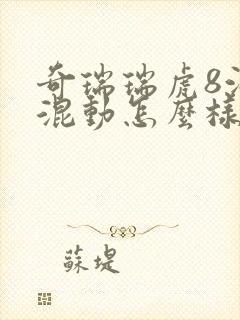 奇瑞瑞虎8
混動怎麼樣
蘇堤